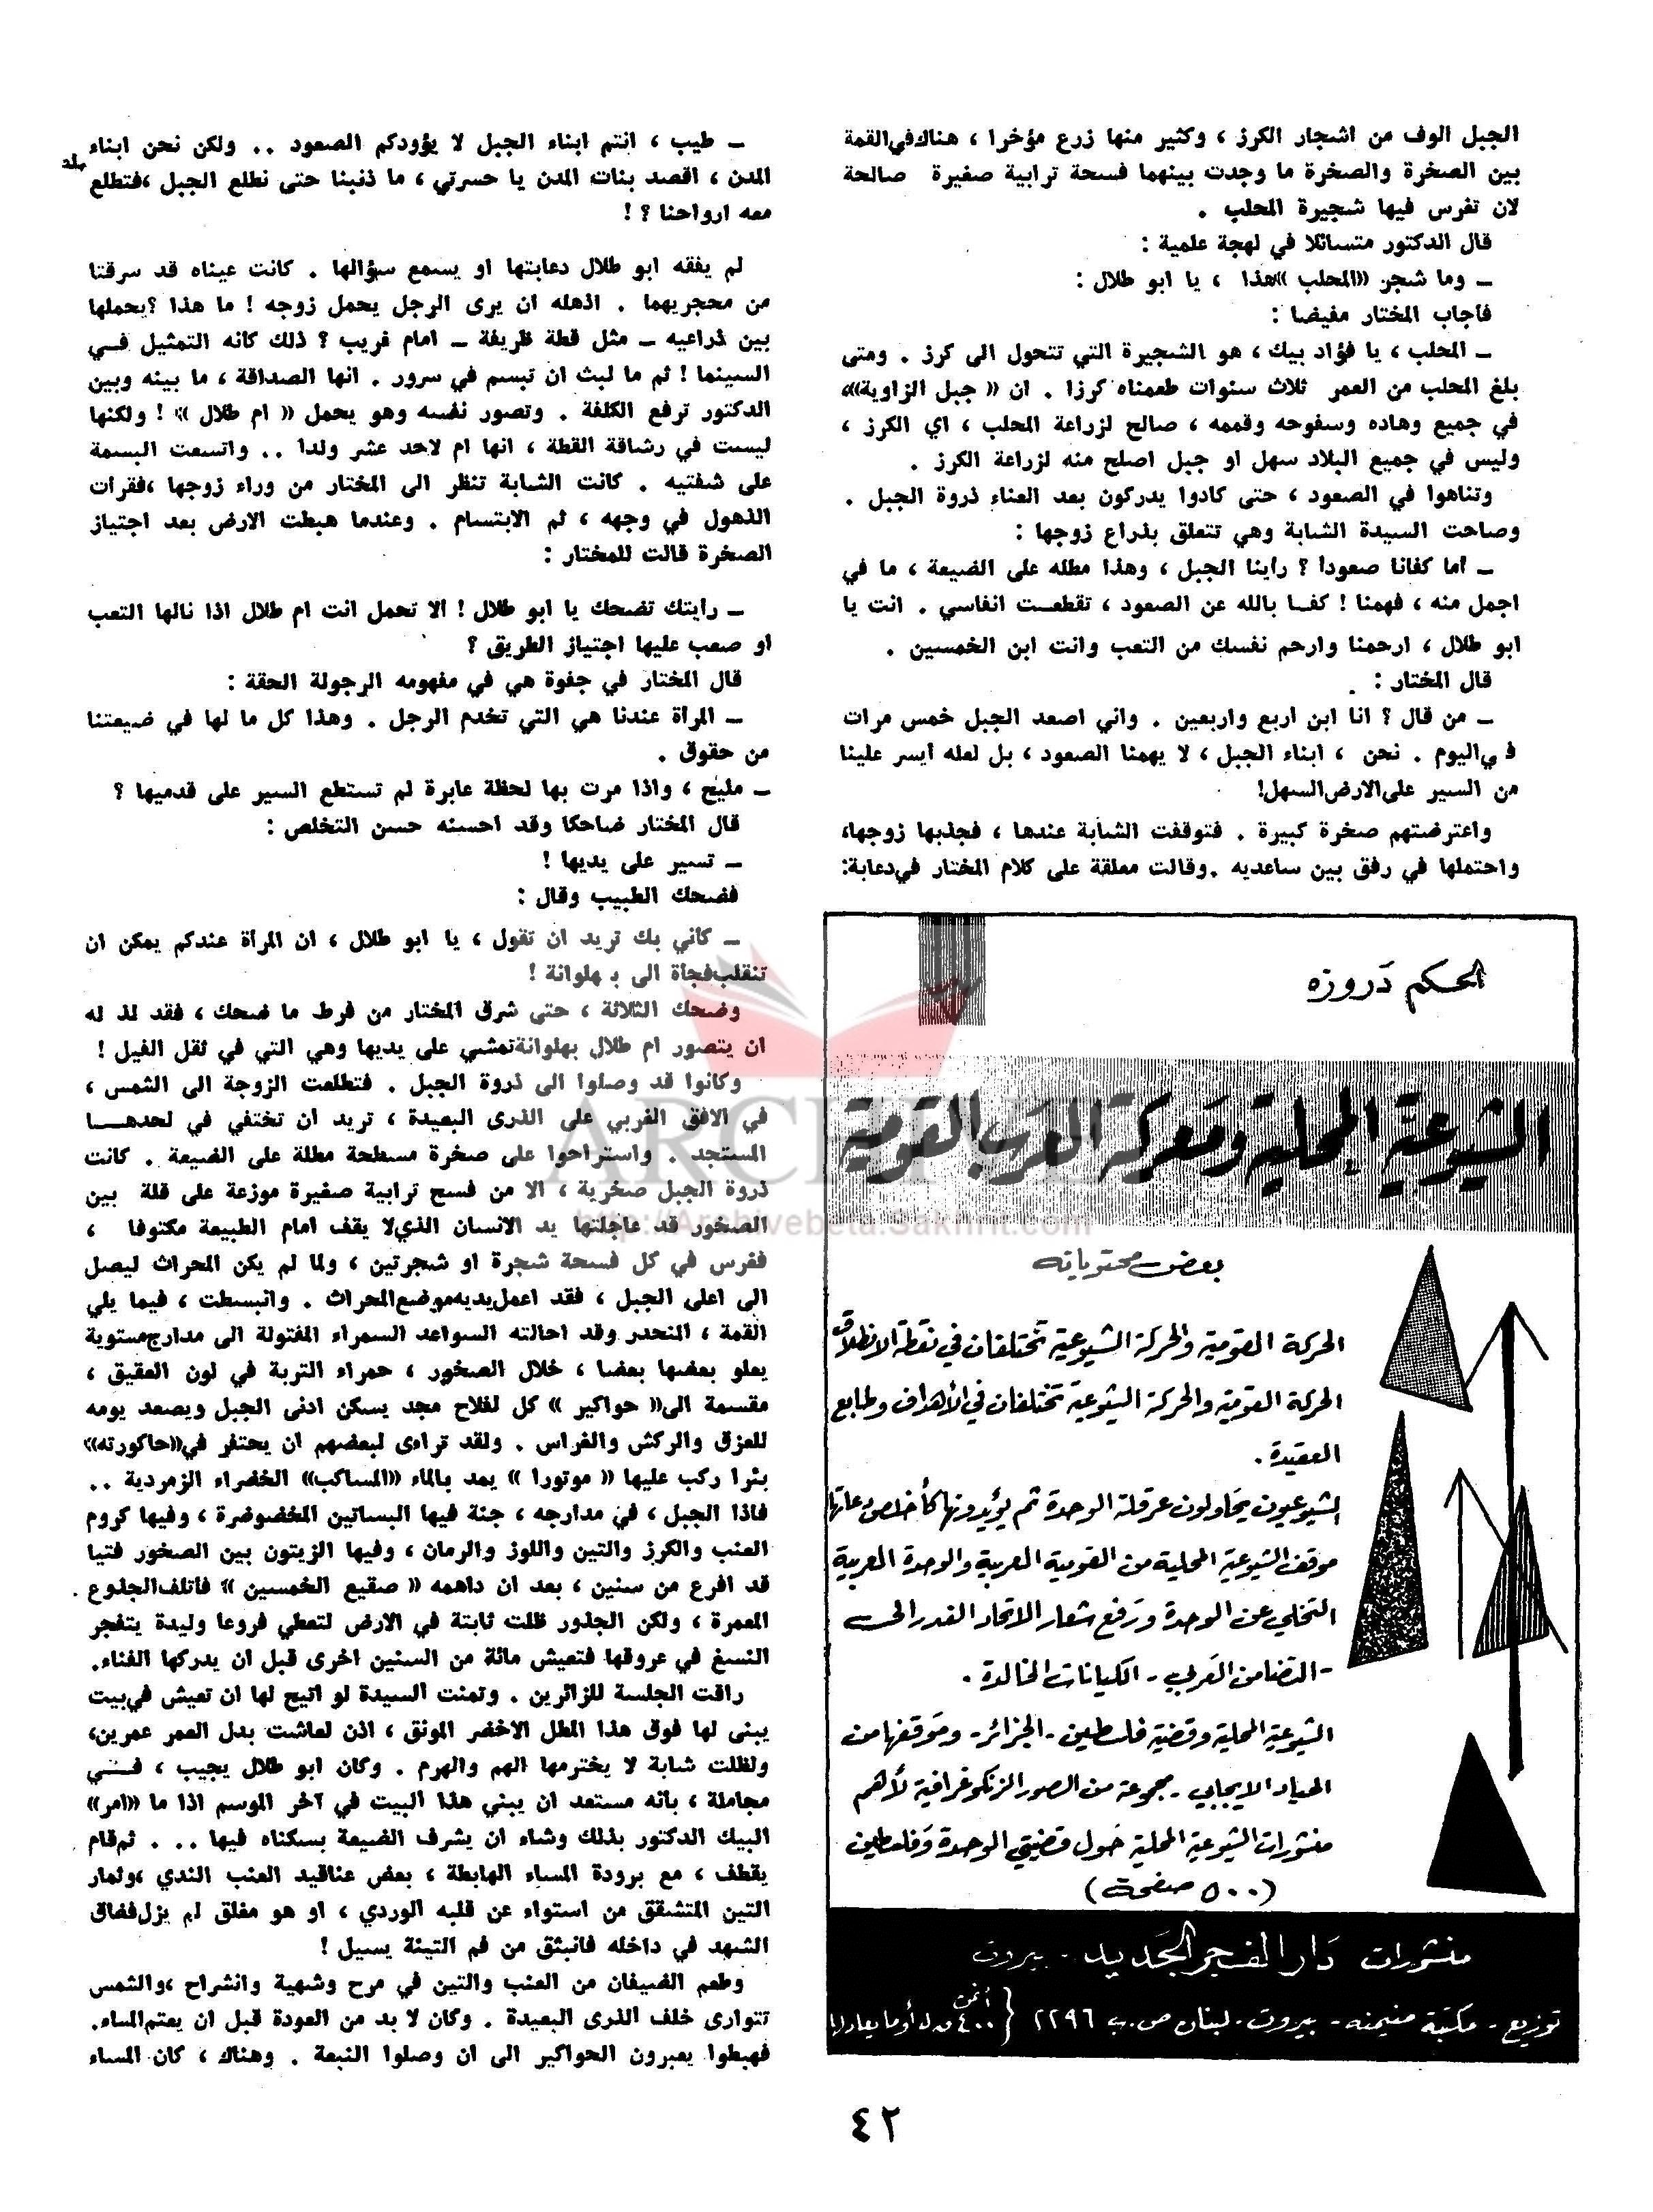 الجبل الوف من اشجار الكرز ، وكثير منها زرع مؤخرا ، هناك في القمة
بين الصخرة والصخرة ما وجدت بينهما فسحة ترابية صغيرة صالحة
لان تغرس فيها شجيرة المحلب .
قال الدكتور متسائلا في لهجة علمية :
ـ وما شجر «المحلب» هذا ، يا ابو طلال :
فأجاب المختار مفيضا :
ـ المحلب ، يا فؤاد بيك ، هو الشجيرة التي تتحول الى كرز . ومتى
بلغ المحلب من العمر ثلاث سنوات طعمناه كرزا . ان « جبل الزاوية»،
في جميع وهاده وسفوحه وقممه ، صالح لزراعة المحلب ، اي الكرز ،
وليس في جميع البلاد سهل او جبل اصلح منه لزراعة الكرز .
وتناهوا في الصعود ، حتى كادوا يدركون بعد العناء ذروة الجبل .
وصاحت السيدة الشابة وهي تتعلق بذراع زوجها :
ـ أما كفانا صعوداً ؟ رأينا الجبل ، وهذا مطله على الضيعة ، ما في
اجمل منه ، فهمنا ! كفـا بالله عن الصعود ، تقطعـت انفاسي . انت يا
ابو طلال ، ارحمنا وارحم نفسك من التعب وانت ابن الخمسين .
قال المختار :
ـ من قال ؟ انا ابن أربع واربعين . واني اصعد الجبل خمس مرات
في اليوم . نحن ، ابناء الجبل ، لا يهمنا الصعود ، بل لعله أيسر علينا
من السير على الارض السهل!
واعترضتهم صخرة كبيرة . فتوقفت الشابة عندها ، فجذبها زوجها،
واحتملها في رفق بين ساعديه . وقالت معلقة على كلام المختار في دعابة:
الحكم دروزه
الشيوعية المحلية ومعركة العرب القومية
بعض محتوياته
الحركة القومية والحركة الشيوعية تختلفان في نقطة الانطلاق
الحركة القومية والحركة الشيوعية تختلفان في الأهداف وطابع
العقيدة .
الشيوعيون يحاولون عرقلة الوحدة ثم يؤيدونها كأخلص دعاتها
موقف الشيوعية المحلية من القومية العربية والوحدة العربية
التخلي عن الوحدة ورفع شعار الاتحاد الفدرالي
- التضامن العربي - الكيانات الخالدة .
الشيوعية المحلية وقضية فلسطين - الجزائر - وموقفها من
الحياد الايجابي - مجموعة من الصور الزنكوغرافية لأهم
منشورات الشيوعية المحلية حول قضيتي الوحدة وفلسطين
(٥٠٠ صفحة)
منشورات دار الفجر الجديد - بيروت
توزيع - مكتبة منيمنه - بيروت - لبنان ص.ب ٢٢٩٦ { الثمن ٤٠٠ ق.ل أو ما يعادلها
ـ طيب ، انتم ابناء الجبل لا يؤودكم الصعود .. ولكن نحن ابناء
المدن ، اقصد بنات المدن يا حسرتي ، ما ذنبنا حتى نطلع الجبل ،فتطلع
معه ارواحنا ؟ !
لم يفقه ابو طلال دعابتها او يسمع سؤالها . كانت عيناه قد سرقتا
من محجريهما . اذهله ان يرى الرجل يحمل زوجه ! ما هذا ؟يحملها
بين ذراعيه ـ مثل قطة ظريفة ـ امام غريب ؟ ذلك كأنه التمثيل فـي
السينما ! ثم ما لبث ان تبسم في سرور . انها الصداقة ، ما بينه وبين
الدكتور ترفع الكلفة . وتصور نفسه وهو يحمل « ام طلال » ! ولكنها
ليست في رشاقة القطة ، انها ام لاحد عشر ولداً .. واتسعت البسمة
على شفتيه . كانت الشابة تنظر الى المختار من وراء زوجها ،فقرأت
الذهول في وجهه ، ثم الابتسام . وعندما هبطت الارض بعد اجتياز
الصخرة قالت للمختار :
ـ رأيتك تضحك يا ابو طلال ! ألا تحمل انت ام طلال اذا نالها التعب
او صعب عليها اجتياز الطريق ؟
قال المختار في جفوة هي في مفهومه الرجولة الحقة :
ـ المرأة عندنا هي التي تخدم الرجل . وهذا كل ما لها في ضيعتنا
من حقوق .
ـ مليح ، واذا مرت بها لحظة عابرة لم تستطع السير على قدميها ؟
قال المختار ضاحكا وقد احسبنه حسن التخلص :
ـ تسير على يديها !
فضحك الطبيب وقال :
ـ كأني بك تريد ان تقول ، يا ابو طلال ، ان المرأة عندكم يمكن ان
تنقلب فجأة الى بهلوانة !
وضحك الثلاثة ، حتى شرق المختار من فرط ما ضحك ، فقد لذ له
ان يتصور ام طلال بهلوانة تمشي على يديها وهي التي في ثقل الفيل !
وكانوا قد وصلوا الى ذروة الجبل . فتطلعت الزوجة الى الشمس ،
في الافق الغربي على الذرى البعيدة ، تريد ان تختفي في لحدهـــا
المستجد . واستراحوا على صخرة مسطحة مطلة على الضيعة . كانت
ذروة الجبل صخرية ، الا من فسح ترابية صغيرة موزعة على قلة بين
الصخور قد عاجلتها يد الانسان الذي لا يقف امام الطبيعة مكتوفا ،
فغرس في كل فسحة شجرة او شجرتين ، ولما لم يكن المحراث ليصل
الى اعلى الجبل ، فقد اعمل يديه موضع المحراث . وانبسطت ، فيما يلي
القمة ، المنحدر وقد احالته السواعد السمراء المفتولة الى مدارج مستوية
يعلو بعضها بعضا ، خلال الصخور ، حمراء التربة في لون العقيق ،
مقسمة الى« حواكير » كل لفلاح مجد يسكن ادنى الجبل ويصعد يومه
للعزق والركش والغراس . ولقد تراءى لبعضهم ان يحتفر في«حاكورته»
بئرا ركب عليها « موتورا » يمد بالماء «المساكب» الخضراء الزمردية ..
فاذا الجبل ، في مدارجه ، جنة فيها البساتين المخضوضرة ، وفيها كروم
العنب والكرز والتين واللوز والرمان ، وفيها الزيتون بين الصخور فتيا
قد افرع من سنين ، بعد ان داهمه « صقيع الخمسين » فأتلف الجذوع
المعمرة ، ولكن الجذور ظلت ثابتة في الارض لتعطي فروعا وليدة يتفجر
النسغ في عروقها فتعيش مائة من السنين اخرى قبل ان يدركها الفناء.
راقت الجلسة للزائرين . وتمنت السيدة لو اتيح لها ان تعيش في بيت
يبنى لها فوق هذا المطل الاخضر المونق ، اذن لعاشت بدل العمر عمرين،
ولظلت شابة لا يخترمها الهم والهرم . وكان ابو طلال يجيب ، فــي
مجاملة ، بأنه مستعد ان يبني هذا البيت في آخر الموسم اذا ما «أمر»
البيك الدكتور بذلك وشاء ان يشرف الضيعة بسكناه فيها .. . ثم قام
يقطف ، مع برودة المساء الهابطة ، بعض عناقيد العنب الندي ،وثمار
التين المتشقق من استواء عن قلبه الوردي ، او هو مغلق لم يزل فضاق
الشهد في داخله فانبثق من فم التينة يسيل !
وطعم الضيفان من العنب والتين في مرح وشهية وانشراح ،والشمس
تتوارى خلف الذرى البعيدة . وكان لا بد من العودة قبل ان يعتم المساء.
فهبطوا يعبرون الحواكير الى ان وصلوا النبعة . وهناك ، كان المساء
ARCHIVE
http://Archivebeta.Sakhrit.com
٤٢